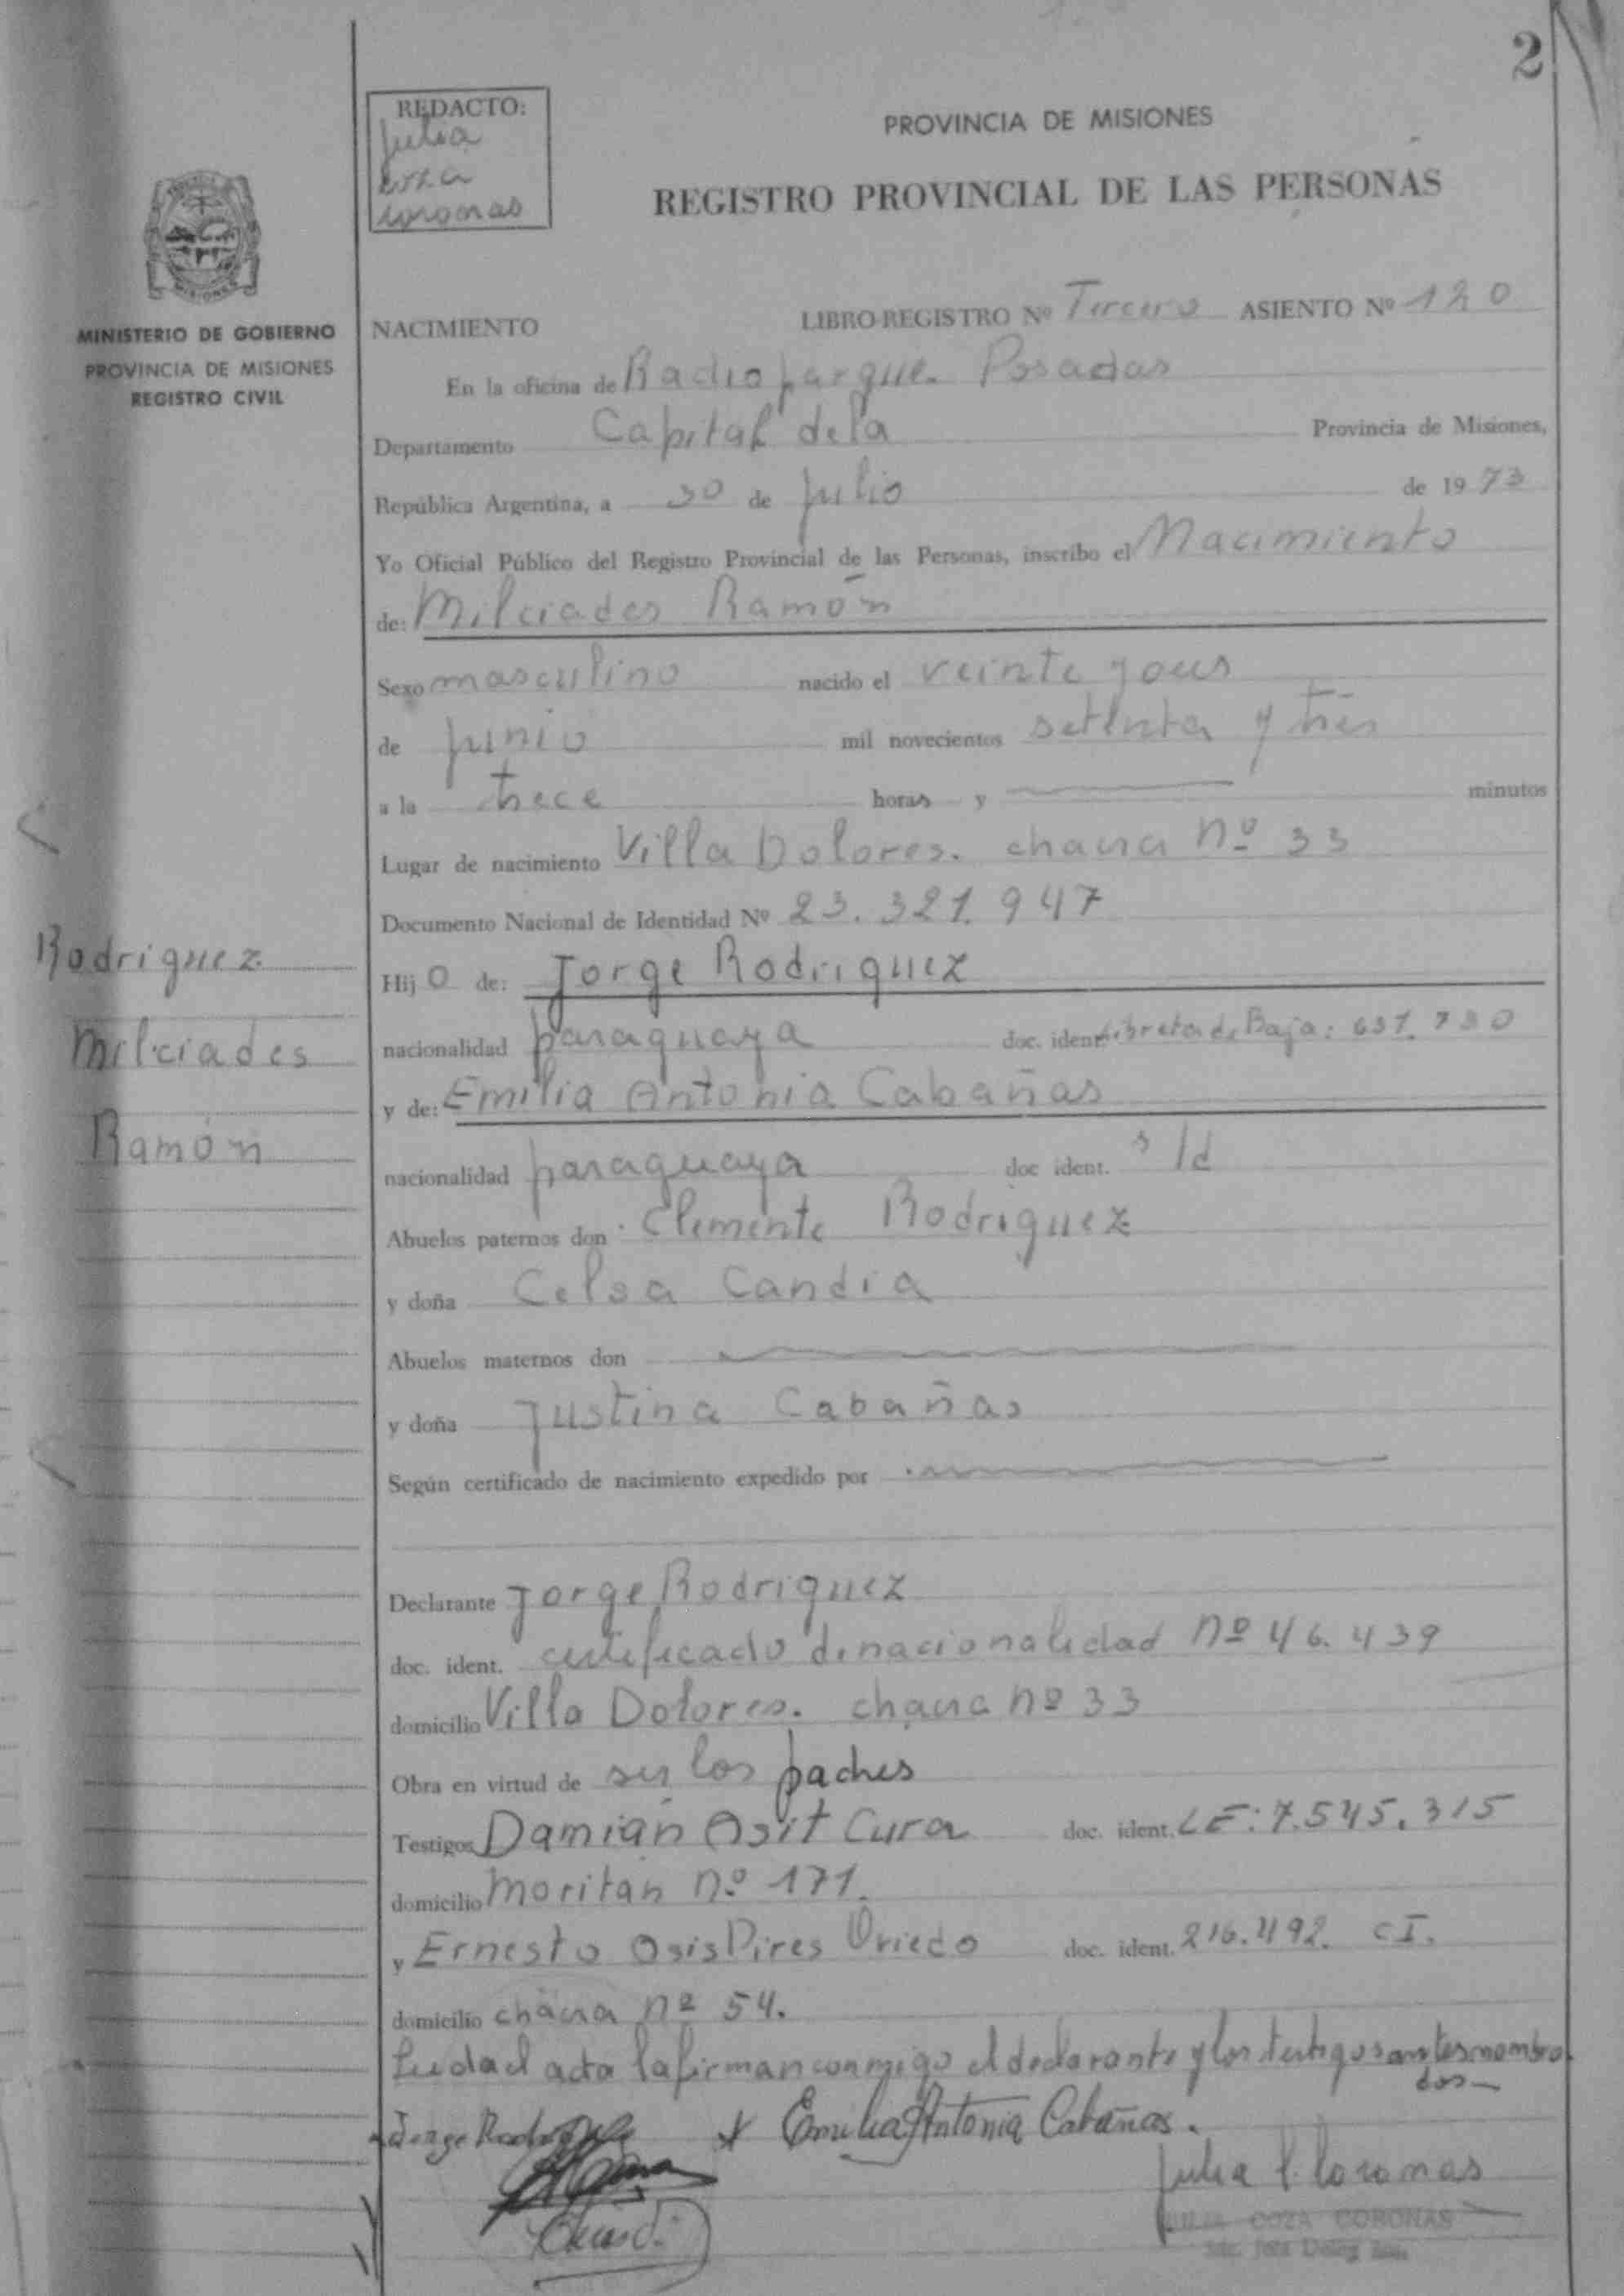 2
REDACTO:
Julia
coza
coronas
PROVINCIA DE MISIONES
REGISTRO PROVINCIAL DE LAS PERSONAS
MINISTERIO DE GOBIERNO
PROVINCIA DE MISIONES
REGISTRO CIVIL
NACIMIENTO LIBRO-REGISTRO Nº Tercero ASIENTO Nº 120
En la oficina de Radio parque. Posadas
Departamento Capital de la Provincia de Misiones,
República Argentina, a 30 de Julio de 1973
Yo Oficial Público del Registro Provincial de las Personas, inscribo el Nacimiento
de: Milciades Ramón
Sexo masculino nacido el veinte y
de Junio mil novecientos setenta y tres
a la trece horas y minutos
Lugar de nacimiento Villa Dolores. chacra nº 33
Documento Nacional de Identidad Nº 23.321.947
Rodriguez
Milciades
Ramón
Hijo de: Jorge Rodriguez
nacionalidad paraguaya doc. ident. Libreta de Baja: 631.730
y de: Emilia Antonia Cabañas
nacionalidad paraguaya doc ident. s/d
Abuelos paternos don Clemente Rodriguez
y doña Celsa Candia
Abuelos maternos don
y doña Justina Cabañas
Según certificado de nacimiento expedido por
Declarante Jorge Rodriguez
doc. ident. certificado de nacionalidad nº 46.439
domicilio Villa Dolores. chacra nº 33
Obra en virtud de ser los padres
Testigos Damián Asit Cura doc. ident. LE: 7.545.315
domicilio Moritán nº 171.
y Ernesto Osis Pires Oviedo doc. ident. 216.492. CI.
domicilio chacra nº 54.
Leida el acta la firman conmigo el declarante y los testigos antes nombra
dos—
Jorge Rodriguez x Emilia Antonia Cabañas.
Julia C. Coronas
JULIA COZA CORONAS